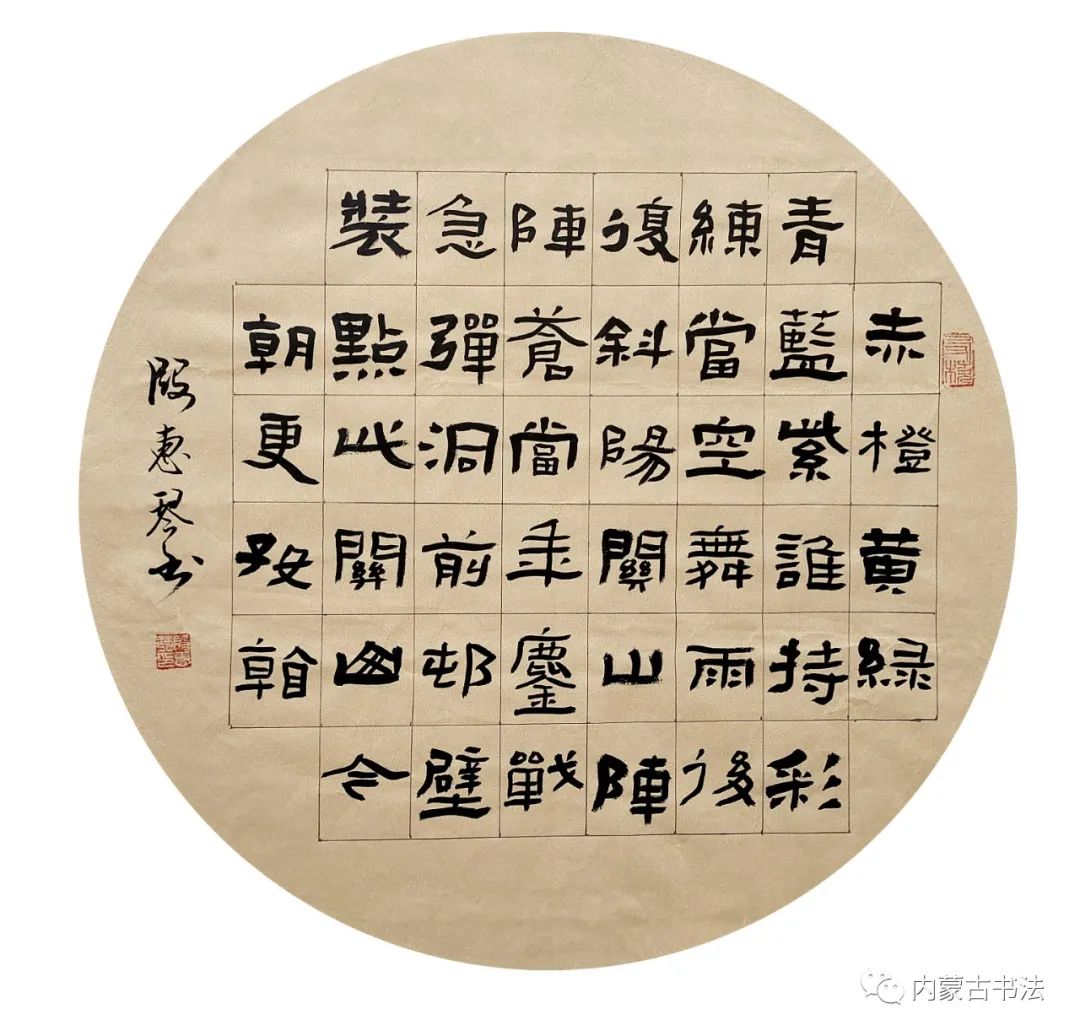 赤橙黄綠
青藍紫誰持彩
練當空舞雨後
復斜陽關山陣
陣蒼當年鏖戰
急彈洞前邨壁
裝點此關山今
朝更好看
段惠琴书
内蒙古书法